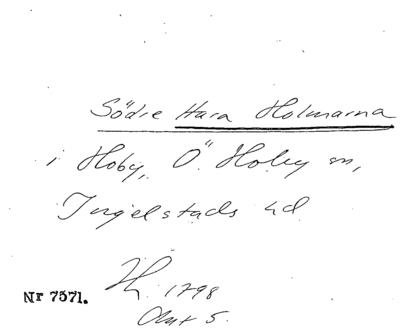 Södre Hara Holmarna
i Hoby, Ö. Hoby sn,
Ingelstads hd
Nr 7571. 1798
Akt 5.